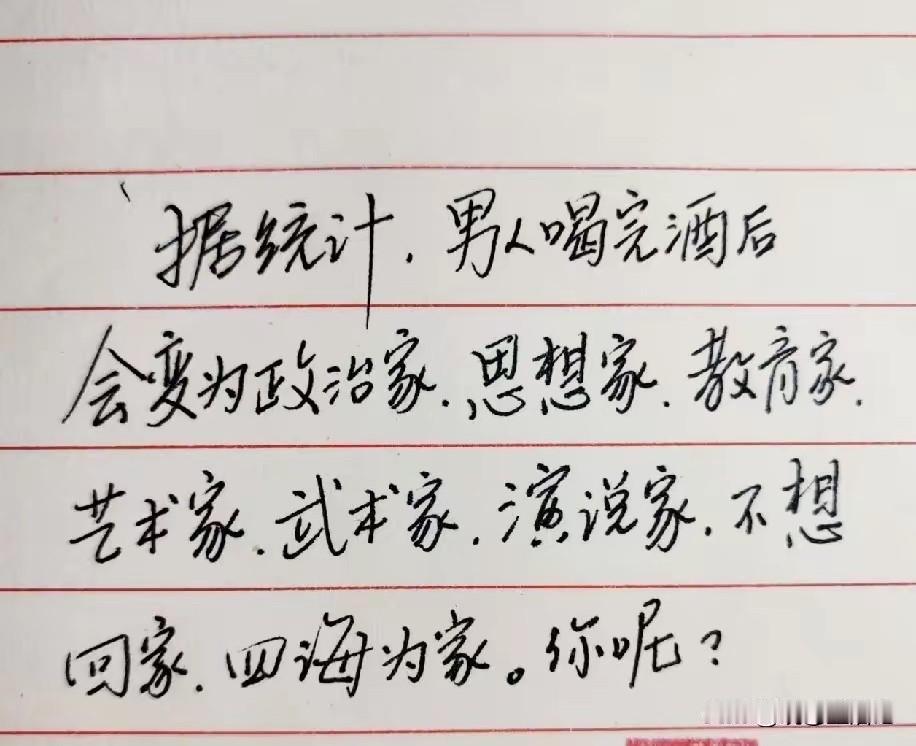 据统计.男人喝完酒后
会变为政治家.思想家.教育家.
艺术家.武术家.演说家.不想
回家.四海为家。你呢?